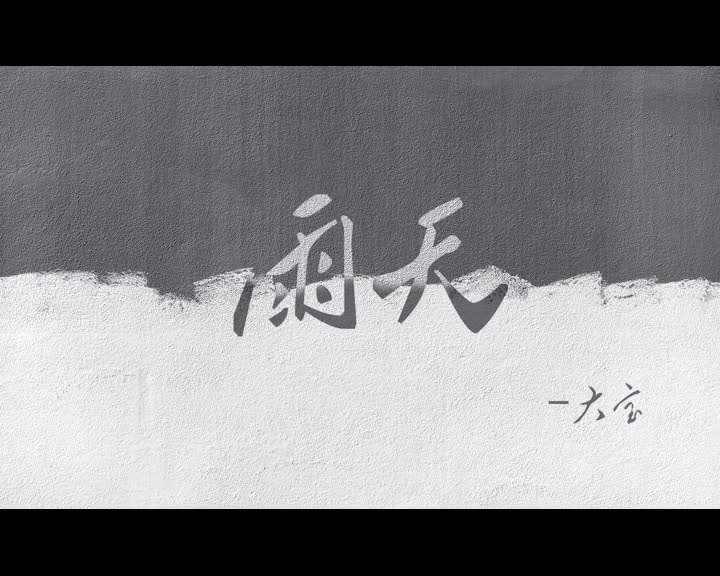 雨天
-大宝